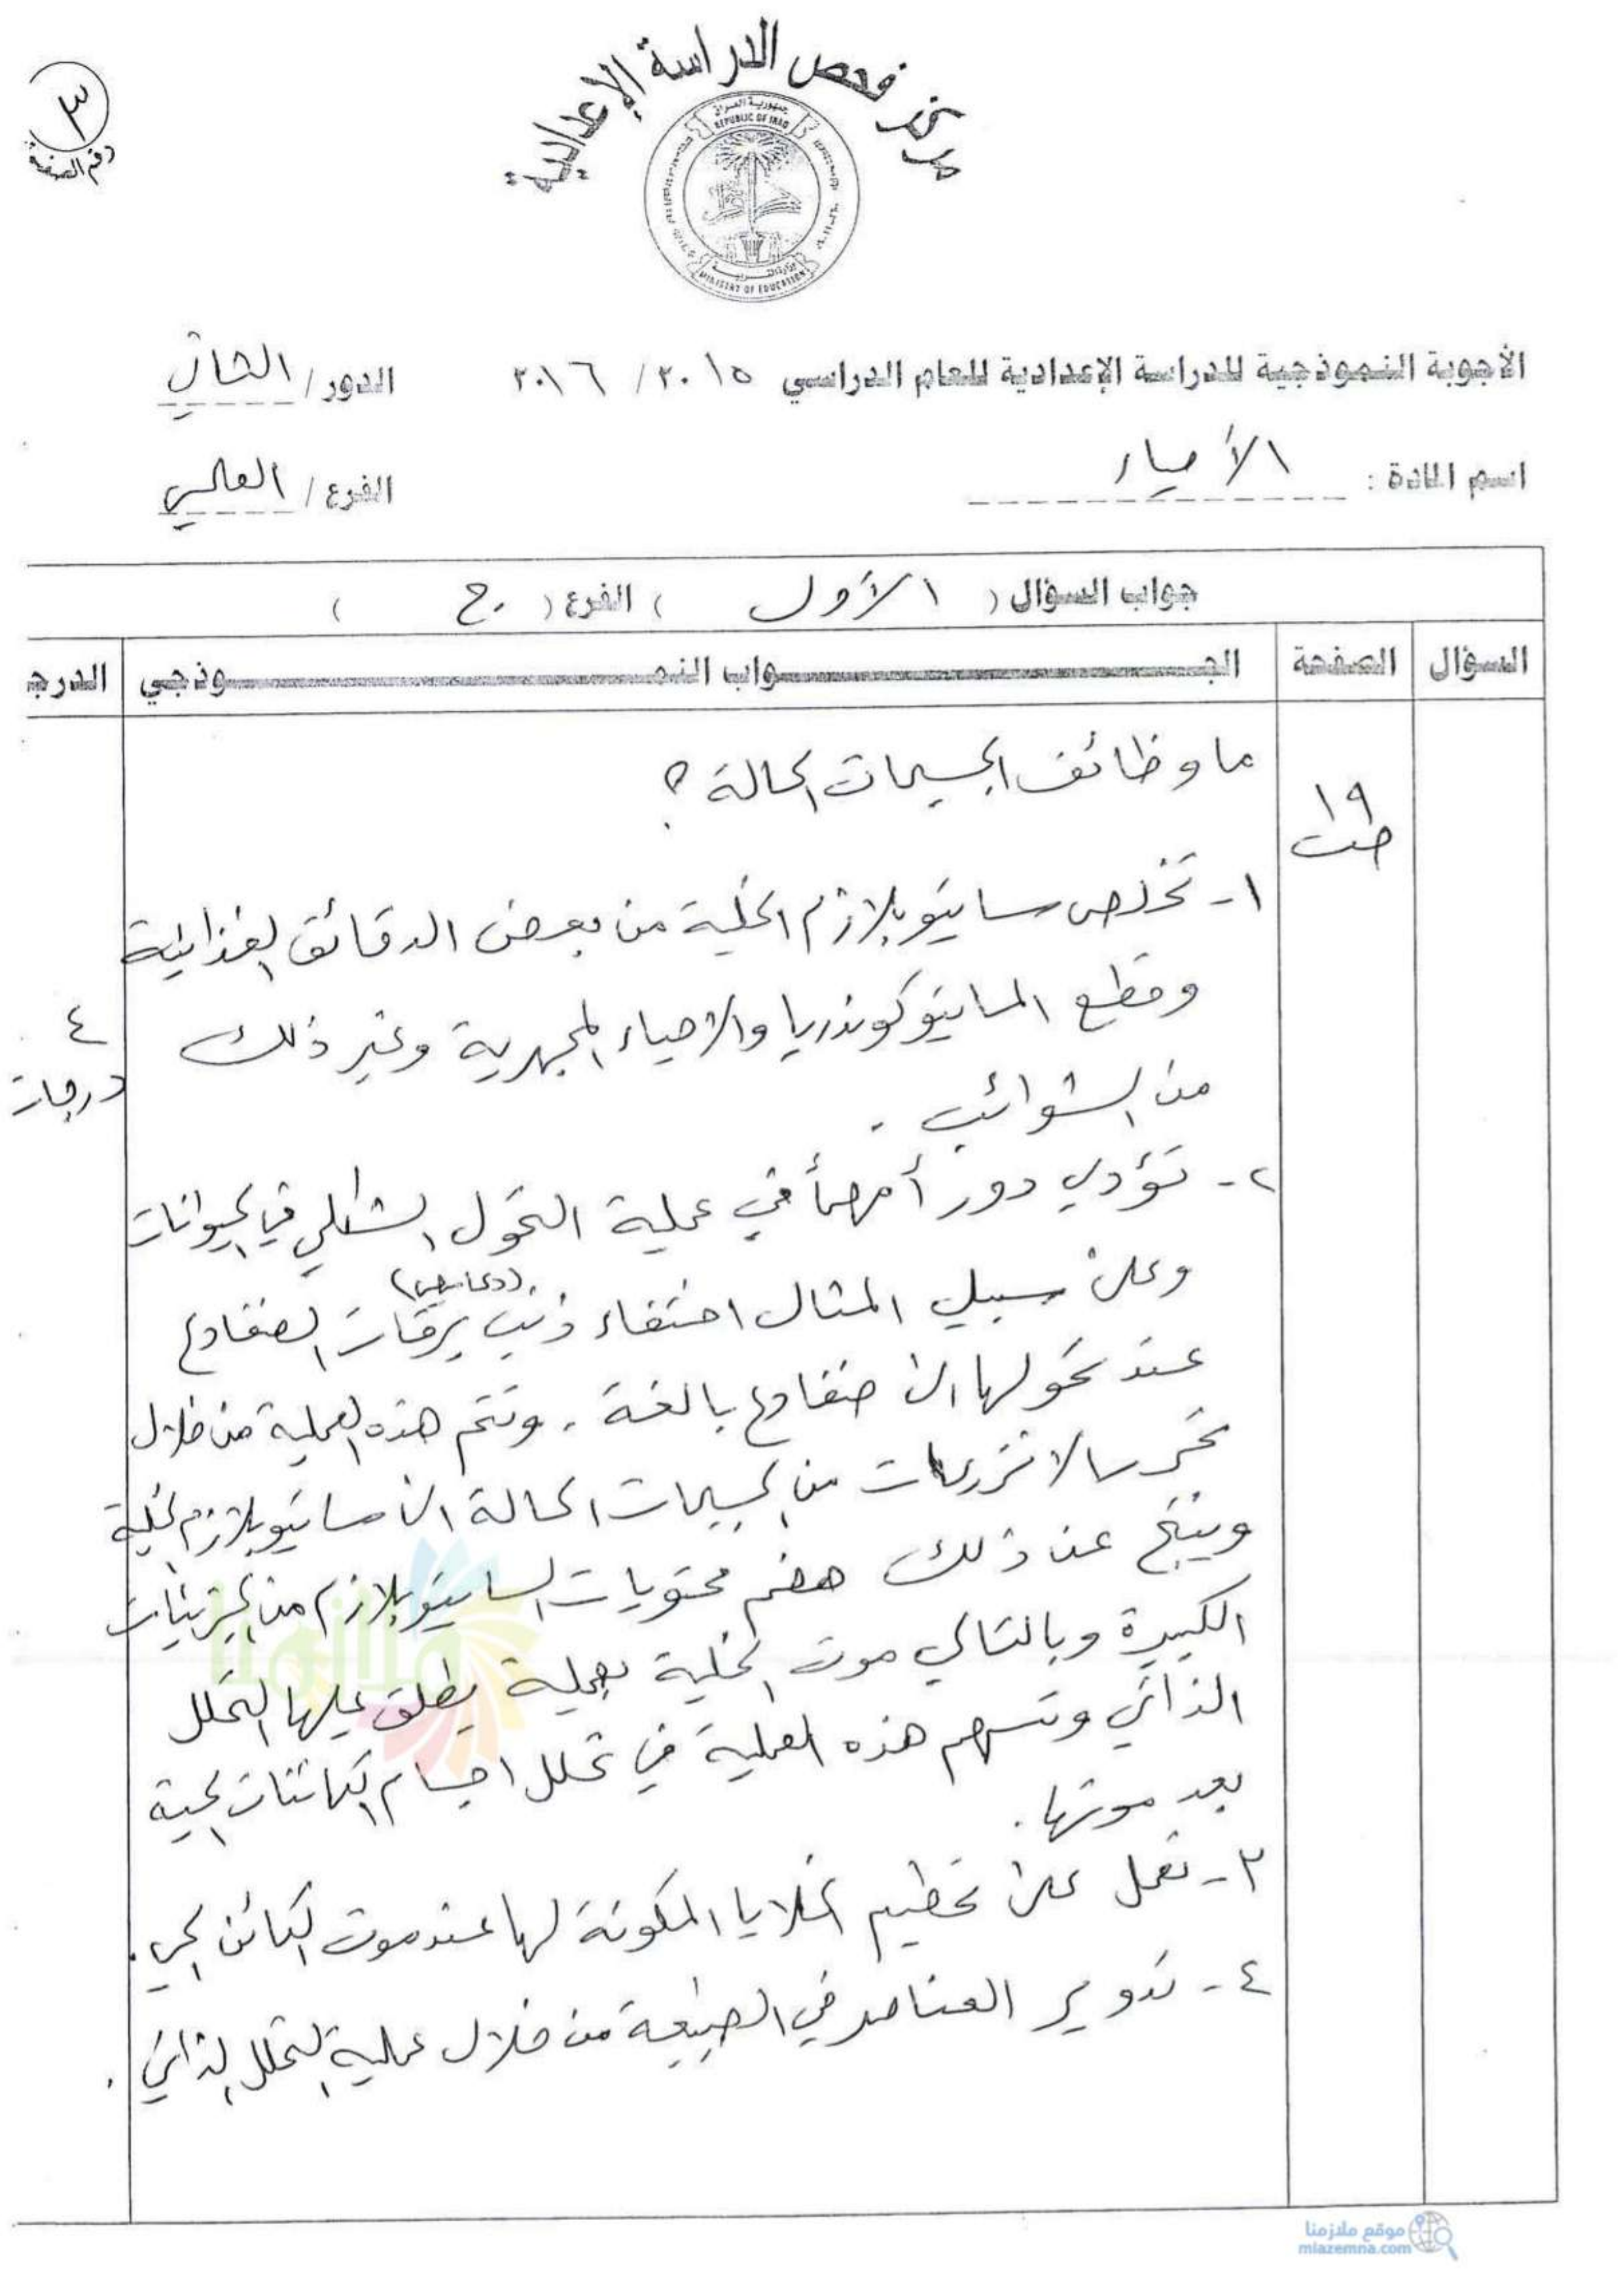 مركز فحص الدراسة الإعدادية
جمهورية العراق
REPUBLIC OF IRAQ
وزارة التربية
MINISTRY OF EDUCATION
٣
رقم الصفحة
الأجوبة النموذجية للدراسة الإعدادية للعام الدراسي ٢٠١٥ / ٢٠١٦ الدور / الثاني
اسم المادة : الأحياء الفرع / العلمي
جواب السؤال ( الأول ) الفرع ( ج )
السؤال الصفحة الجـــواب النمـــوذجي الدرجـ
ما وظائف الجسيمات الحالة ؟
١٩
١- تخلص سايتوبلازم الخلية من بعض الدقائق الغذائية
وقطع المايتوكوندريا والاحياء المجهرية وغير ذلك
٤ درجات
من الشوائب .
٢- تؤدي دوراً مهماً في عملية التحول الشكلي في الحيوانات
وعلى سبيل المثال اختفاء ذنب يرقات (دعاميص) الضفادع
عند تحولها الى ضفادع بالغة . وتتم هذه العملية من خلال
تحرر الانزيمات من الجسيمات الحالة الى سايتوبلازم الخلية
وينتج عن ذلك هضم محتويات السايتوبلازم من الجزيئات
الكبيرة وبالتالي موت الخلية بعملية يطلق عليها التحلل
الذاتي وتسهم هذه العملية في تحلل اجسام الكائنات الحية
بعد موتها .
٣- تعمل على تحطيم الخلايا المكونة لها عند موت الكائن الحي .
٤- تدوير العناصر في الطبيعة من خلال عملية التحلل الذاتي .
ملازمنا
موقع ملازمنا
mlazemna.com